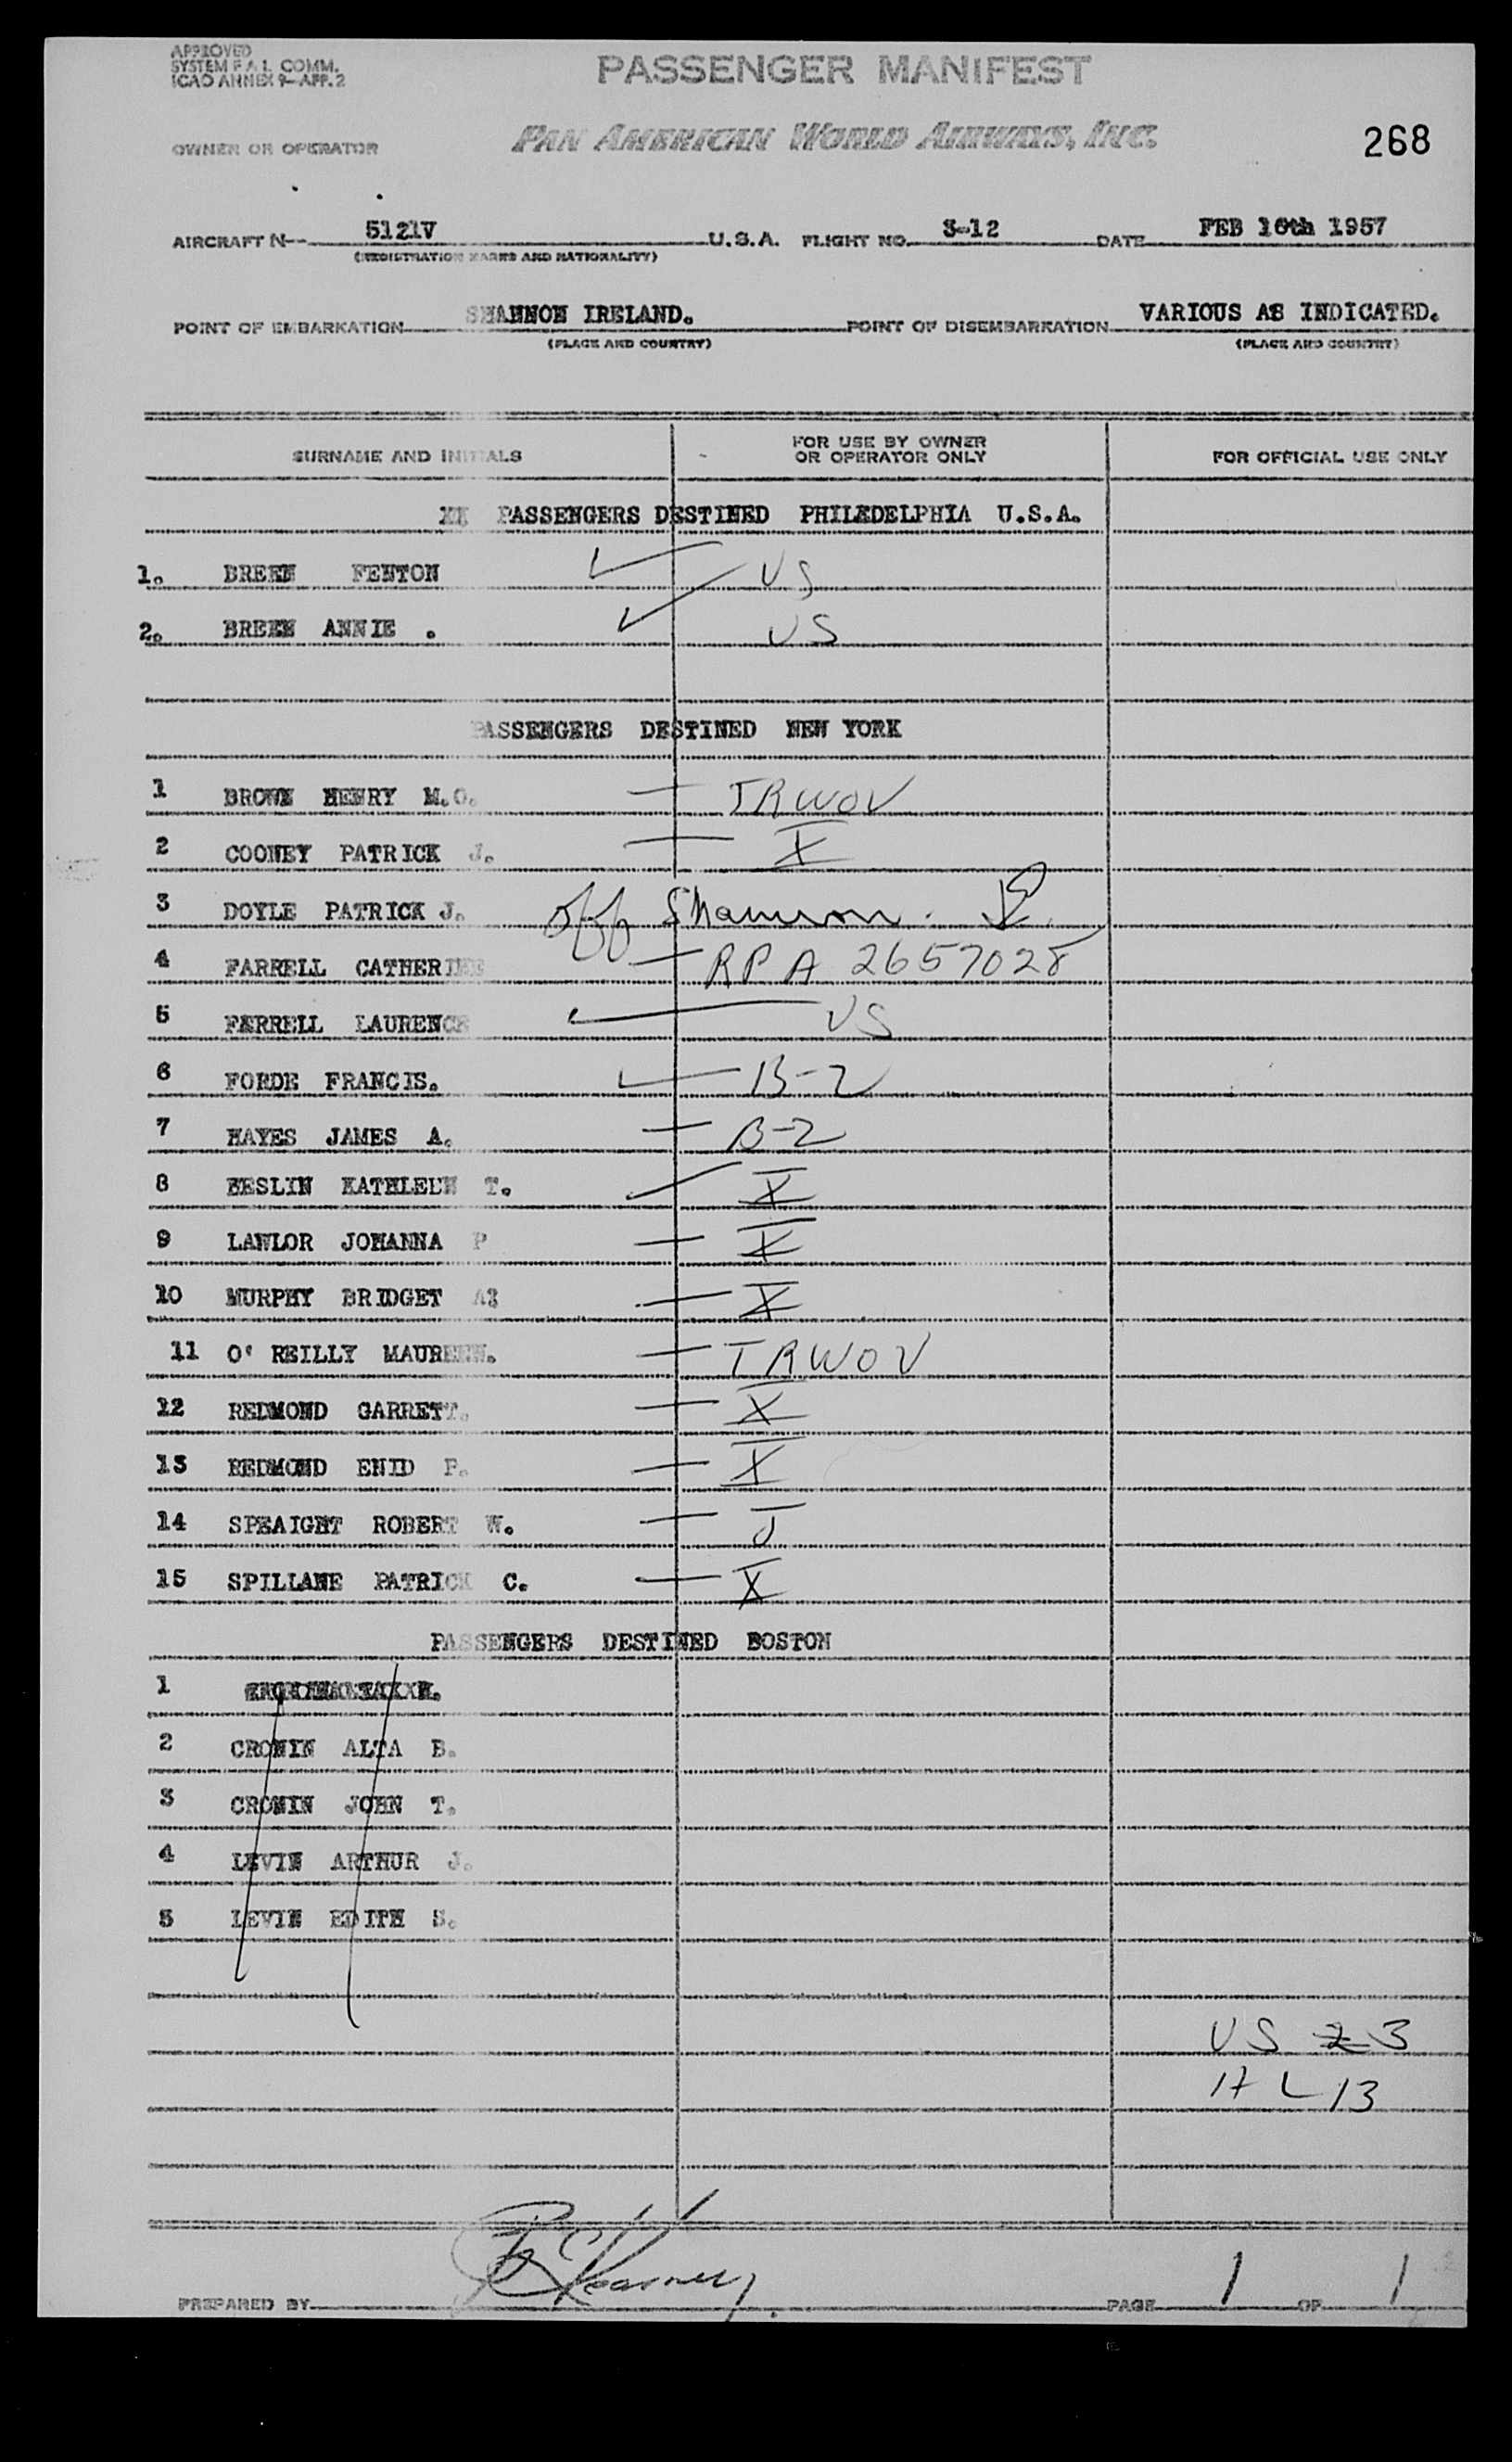 APPROVED
SYSTEM F A L COMM.
ICAO ANNEX 9—APP. 2
PASSENGER MANIFEST
OWNER OR OPERATOR
PAN AMERICAN WORLD AIRWAYS, INC.
268
AIRCRAFT N-- 5121V U.S.A. FLIGHT NO. S-12 DATE FEB 16th 1957
(REGISTRATION MARKS AND NATIONALITY)
POINT OF EMBARKATION SHANNON IRELAND. POINT OF DISEMBARKATION VARIOUS AS INDICATED.
(PLACE AND COUNTRY) (PLACE AND COUNTRY)
SURNAME AND INITIALS FOR USE BY OWNER OR OPERATOR ONLY FOR OFFICIAL USE ONLY
PASSENGERS DESTINED PHILEDELPHIA U.S.A.
1. BREEN FENTON US
2. BREEN ANNIE . US
PASSENGERS DESTINED NEW YORK
1 BROWN HENRY M.O. — TRWOV
2 COONEY PATRICK J. — X
3 DOYLE PATRICK J. off Shannon.
4 FARRELL CATHERINE — RPA 2657028
5 FARRELL LAURENCE US
6 FORDE FRANCIS. B-2
7 HAYES JAMES A. — B-2
8 HESLIN KATHLEEN T. X
9 LAWLOR JOHANNA P — X
10 MURPHY BRIDGET — X
11 O' REILLY MAUREEN. — TRWOV
12 REDMOND GARRETT. — X
13 REDMOND ENID P. — X
14 SPEAIGHT ROBERT W. — J
15 SPILLANE PATRICK C. — X
PASSENGERS DESTINED BOSTON
1
2 CRONIN ALTA B.
3 CRONIN JOHN T.
4 LEVIN ARTHUR J.
5 LEVIN EDITH S.
US 2 3
AL 13
PREPARED BY Kearney PAGE 1 OF 1